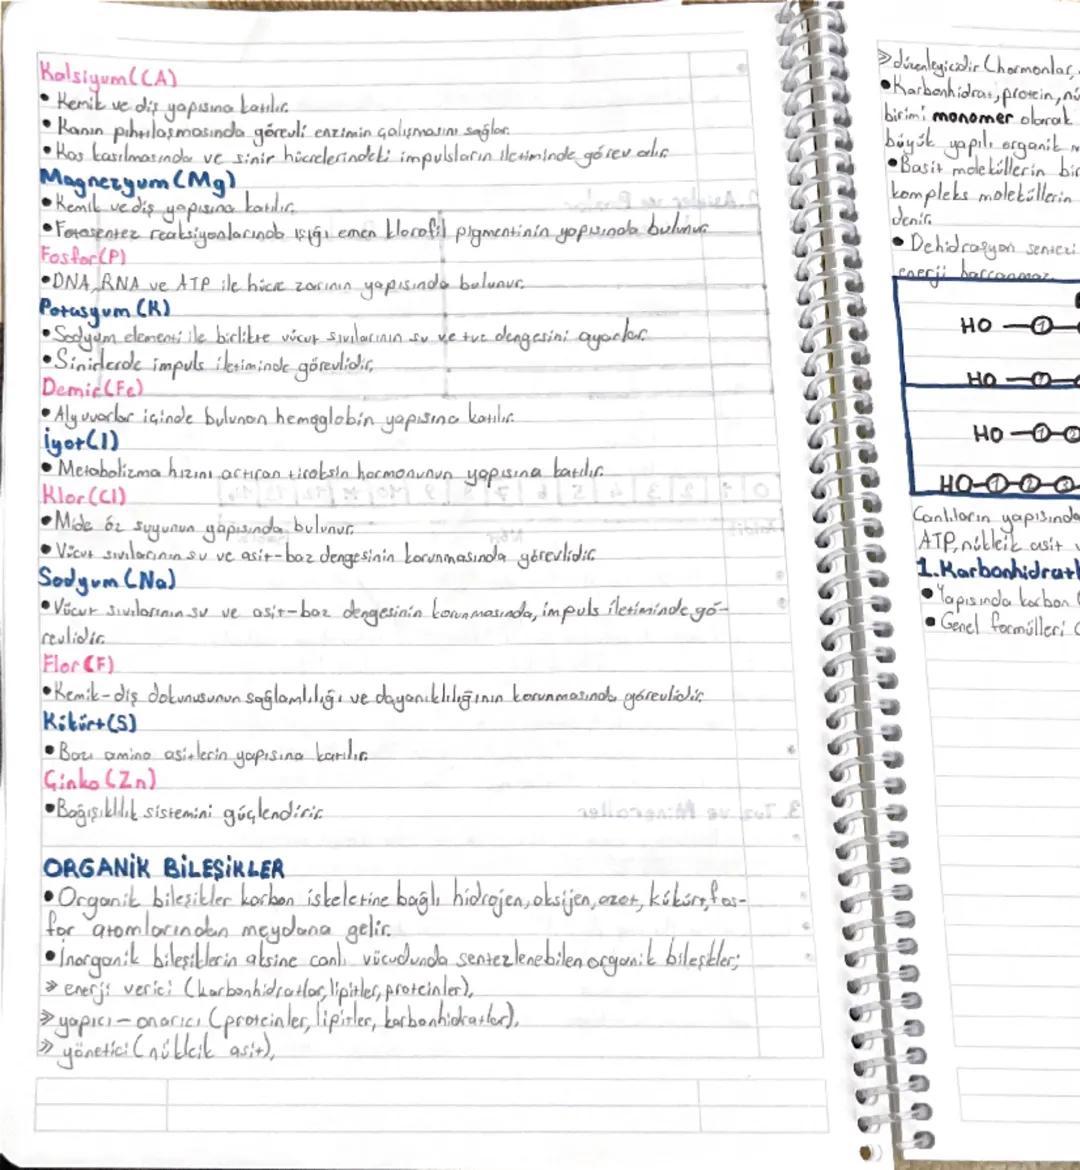 Kalsiyum(CA)
• Kemik ve diş yapısına katılır.
• Kanın pıhtılaşmasında görevli enzimin çalışmasını sağlar.
• Kas kasılmasında ve sinir hücrelerindeki impulsların iletiminde görev alır.
Magnezyum(Mg)
• Kemik ve diş yapısına katılır.
• Fotosentez reaksiyonlarında ışığı emen klorofil pigmentinin yapısında bulunur.
Fosfor(P)
• DNA, RNA ve ATP ile hücre zarının yapısında bulunur.
Potasyum(K)
• Sodyum elementi ile birlikte vücut sıvılarının su ve tuz dengesini ayarlar.
• Sinirlerde impuls iletiminde görevlidir.
Demir(Fe)
• Alyuvarlar içinde bulunan hemoglobin yapısına katılır.
İyot(I)
• Metabolizma hızını artıran tiroksin hormonunun yapısına katılır.
Klor(Cl)
• Mide öz suyunun yapısında bulunur.
• Vücut sıvılarının su ve asit-baz dengesinin korunmasında görevlidir.
Sodyum(Na)
• Vücut sıvılarının su ve asit-baz dengesinin korunmasında, impuls iletiminde gö-
revlidir.
Flor(F)
• Kemik-diş dokunusunun sağlamlılığı ve dayanıklılığının korunmasında görevlidir.
Kükürt(S)
• Bazı amino asitlerin yapısına katılır.
Çinko(Zn)
• Bağışıklılık sistemini güçlendirir.
ORGANİK BİLEŞİKLER
• Organik bileşikler karbon iskeletine bağlı hidrojen, oksijen, azot, kükürt, fos-
for atomlarından meydana gelir.
• İnorganik bileşiklerin aksine canlı vücudunda sentezlenebilen organik bileşikler;
» enerji verici (karbonhidratlar, lipitler, proteinler),
» yapıcı-onarıcı (proteinler, lipitler, karbonhidratlar),
» yönetici (nükleik asit),
» düzenleyicidir (hormonlar,
• Karbonhidrat, protein, nü
birimi monomer olarak
büyük yapılı organik m
• Basit moleküllerin bir
kompleks moleküllerin
denir.
• Dehidrasyon sentezi
enerji harcanmaz.
HO-①-
HO-①-
HO-①-②
HO-①-②-③
Canlıların yapısında
ATP, nükleik asit v
1.Karbonhidratl
• Yapısında karbon (
• Genel formülleri C